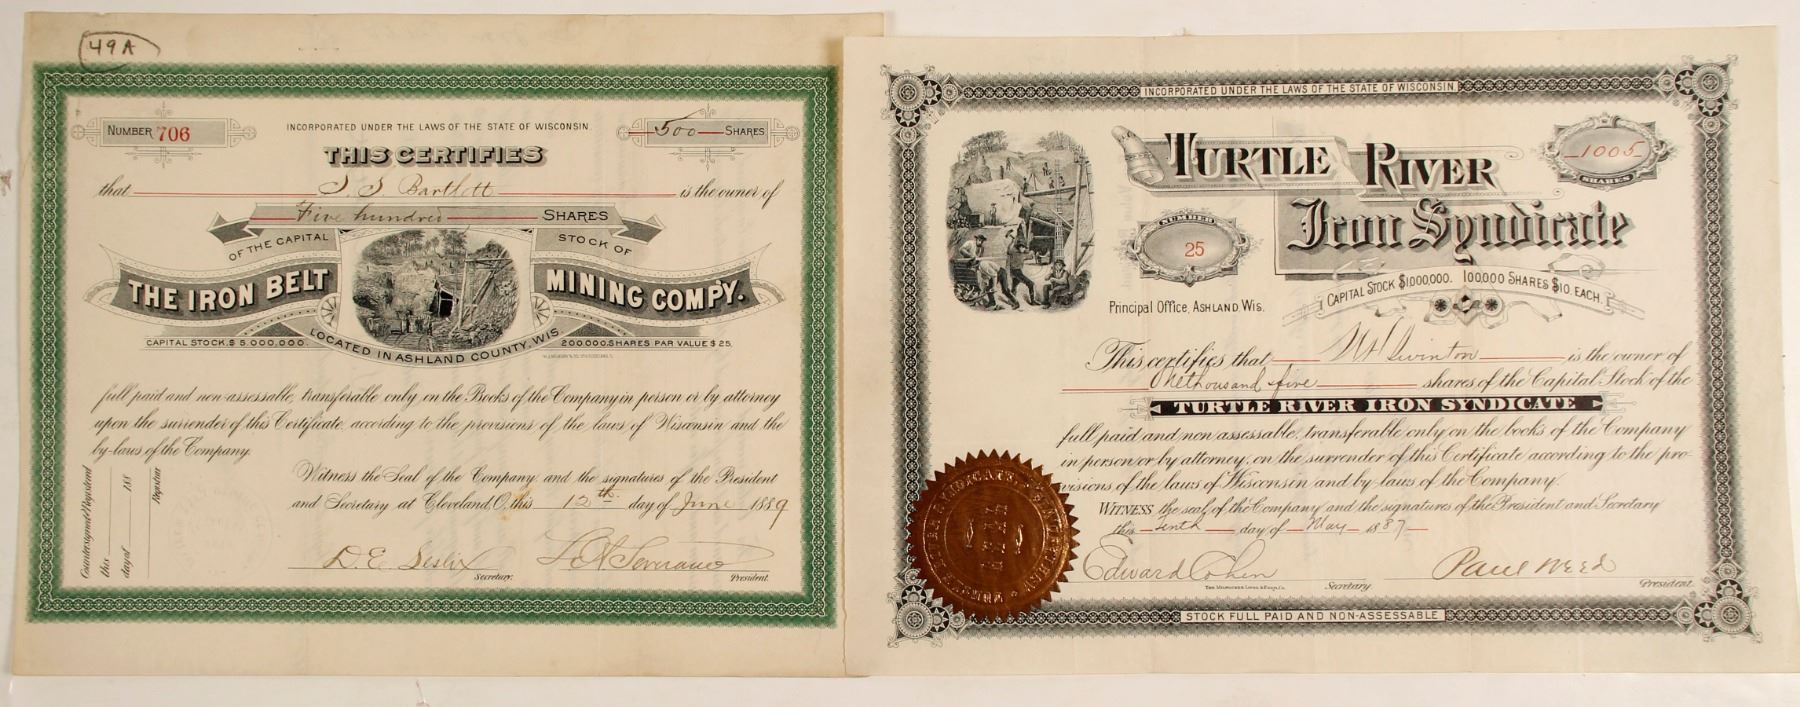 49A
NUMBER 706
INCORPORATED UNDER THE LAWS OF THE STATE OF WISCONSIN.
500 SHARES
THIS CERTIFIES
that Bartlett is the owner of
Five hundred SHARES
OF THE CAPITAL STOCK OF
THE IRON BELT MINING COMPY.
CAPITAL STOCK, $5,000,000. LOCATED IN ASHLAND COUNTY, WIS 200,000, SHARES PAR VALUE $25.
full paid and non-assessable, transferable only on the Books of the Company in person or by attorney
upon the surrender of this Certificate according to the provisions of the laws of Wisconsin and the
by-laws of the Company.
Witness the Seal of the Company and the signatures of the President
and Secretary at Cleveland, O, this 12th day of June 1889
Countersigned and Registered
this
day of 188
Registrar
D. E.
Secretary.
President.
INCORPORATED UNDER THE LAWS OF THE STATE OF WISCONSIN
TURTLE RIVER
Iron Syndicate
1005
SHARES
NUMBER
25
Principal Office, ASHLAND, WIS.
CAPITAL STOCK $1,000,000. 100,000 SHARES $10. EACH.
This certifies that Swinton is the owner of
One thousand five shares of the Capital Stock of the
TURTLE RIVER IRON SYNDICATE
full paid and non assessable, transferable only on the books of the Company
in person or by attorney, on the surrender of this Certificate according to the pro-
visions of the laws of Wisconsin and by-laws of the Company.
WITNESS the seal of the Company and the signatures of the President and Secretary
this tenth day of May 1887
Edward Cohen
Secretary
Paul Weed
President.
STOCK FULL PAID AND NON-ASSESSABLE